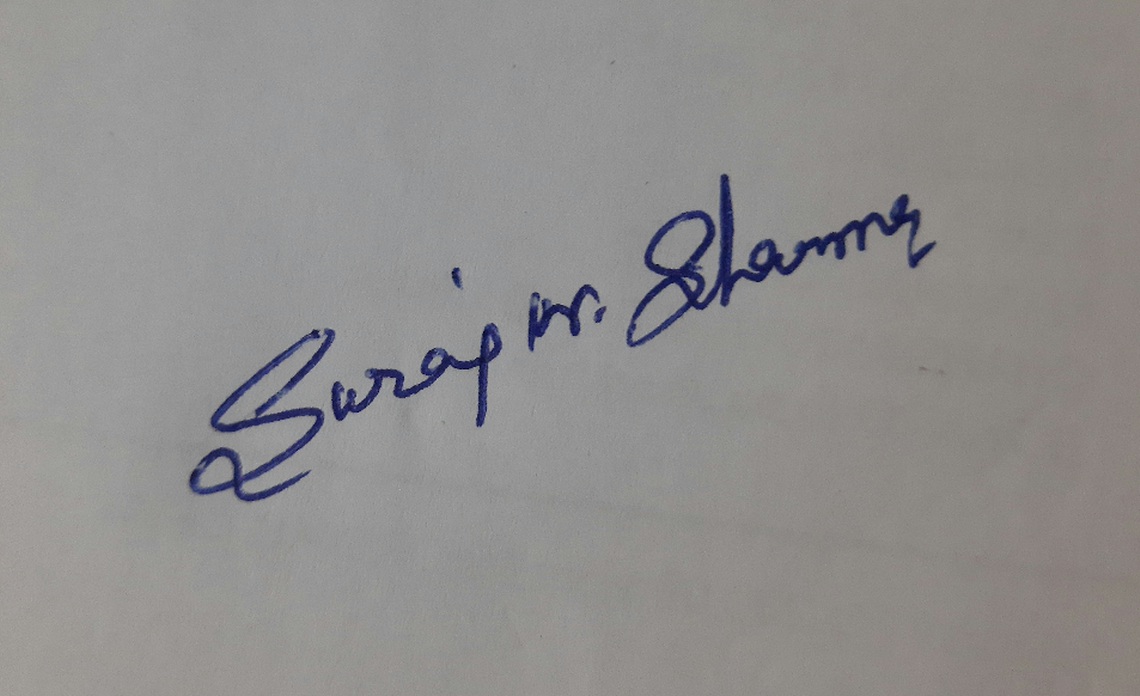 Suraj Kr. Sharma